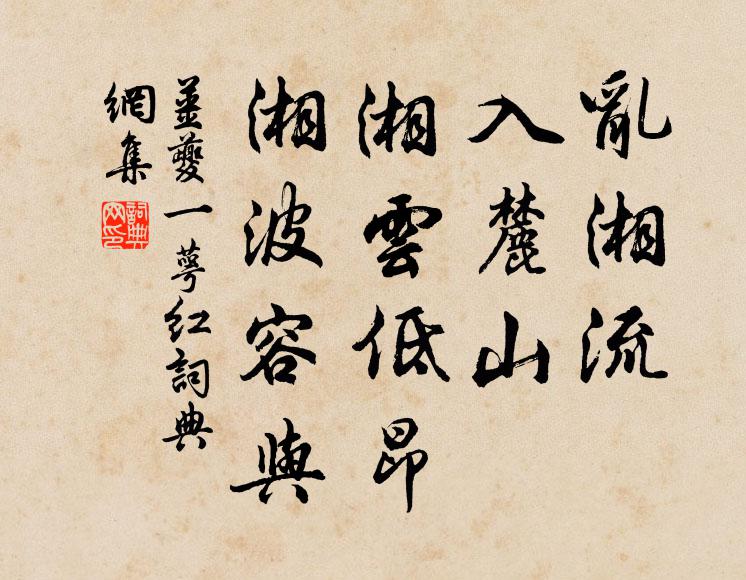 亂湘流
入麓山
湘雲低昂
湘波容與
姜夔一萼紅詞典
網集
詞典
網印